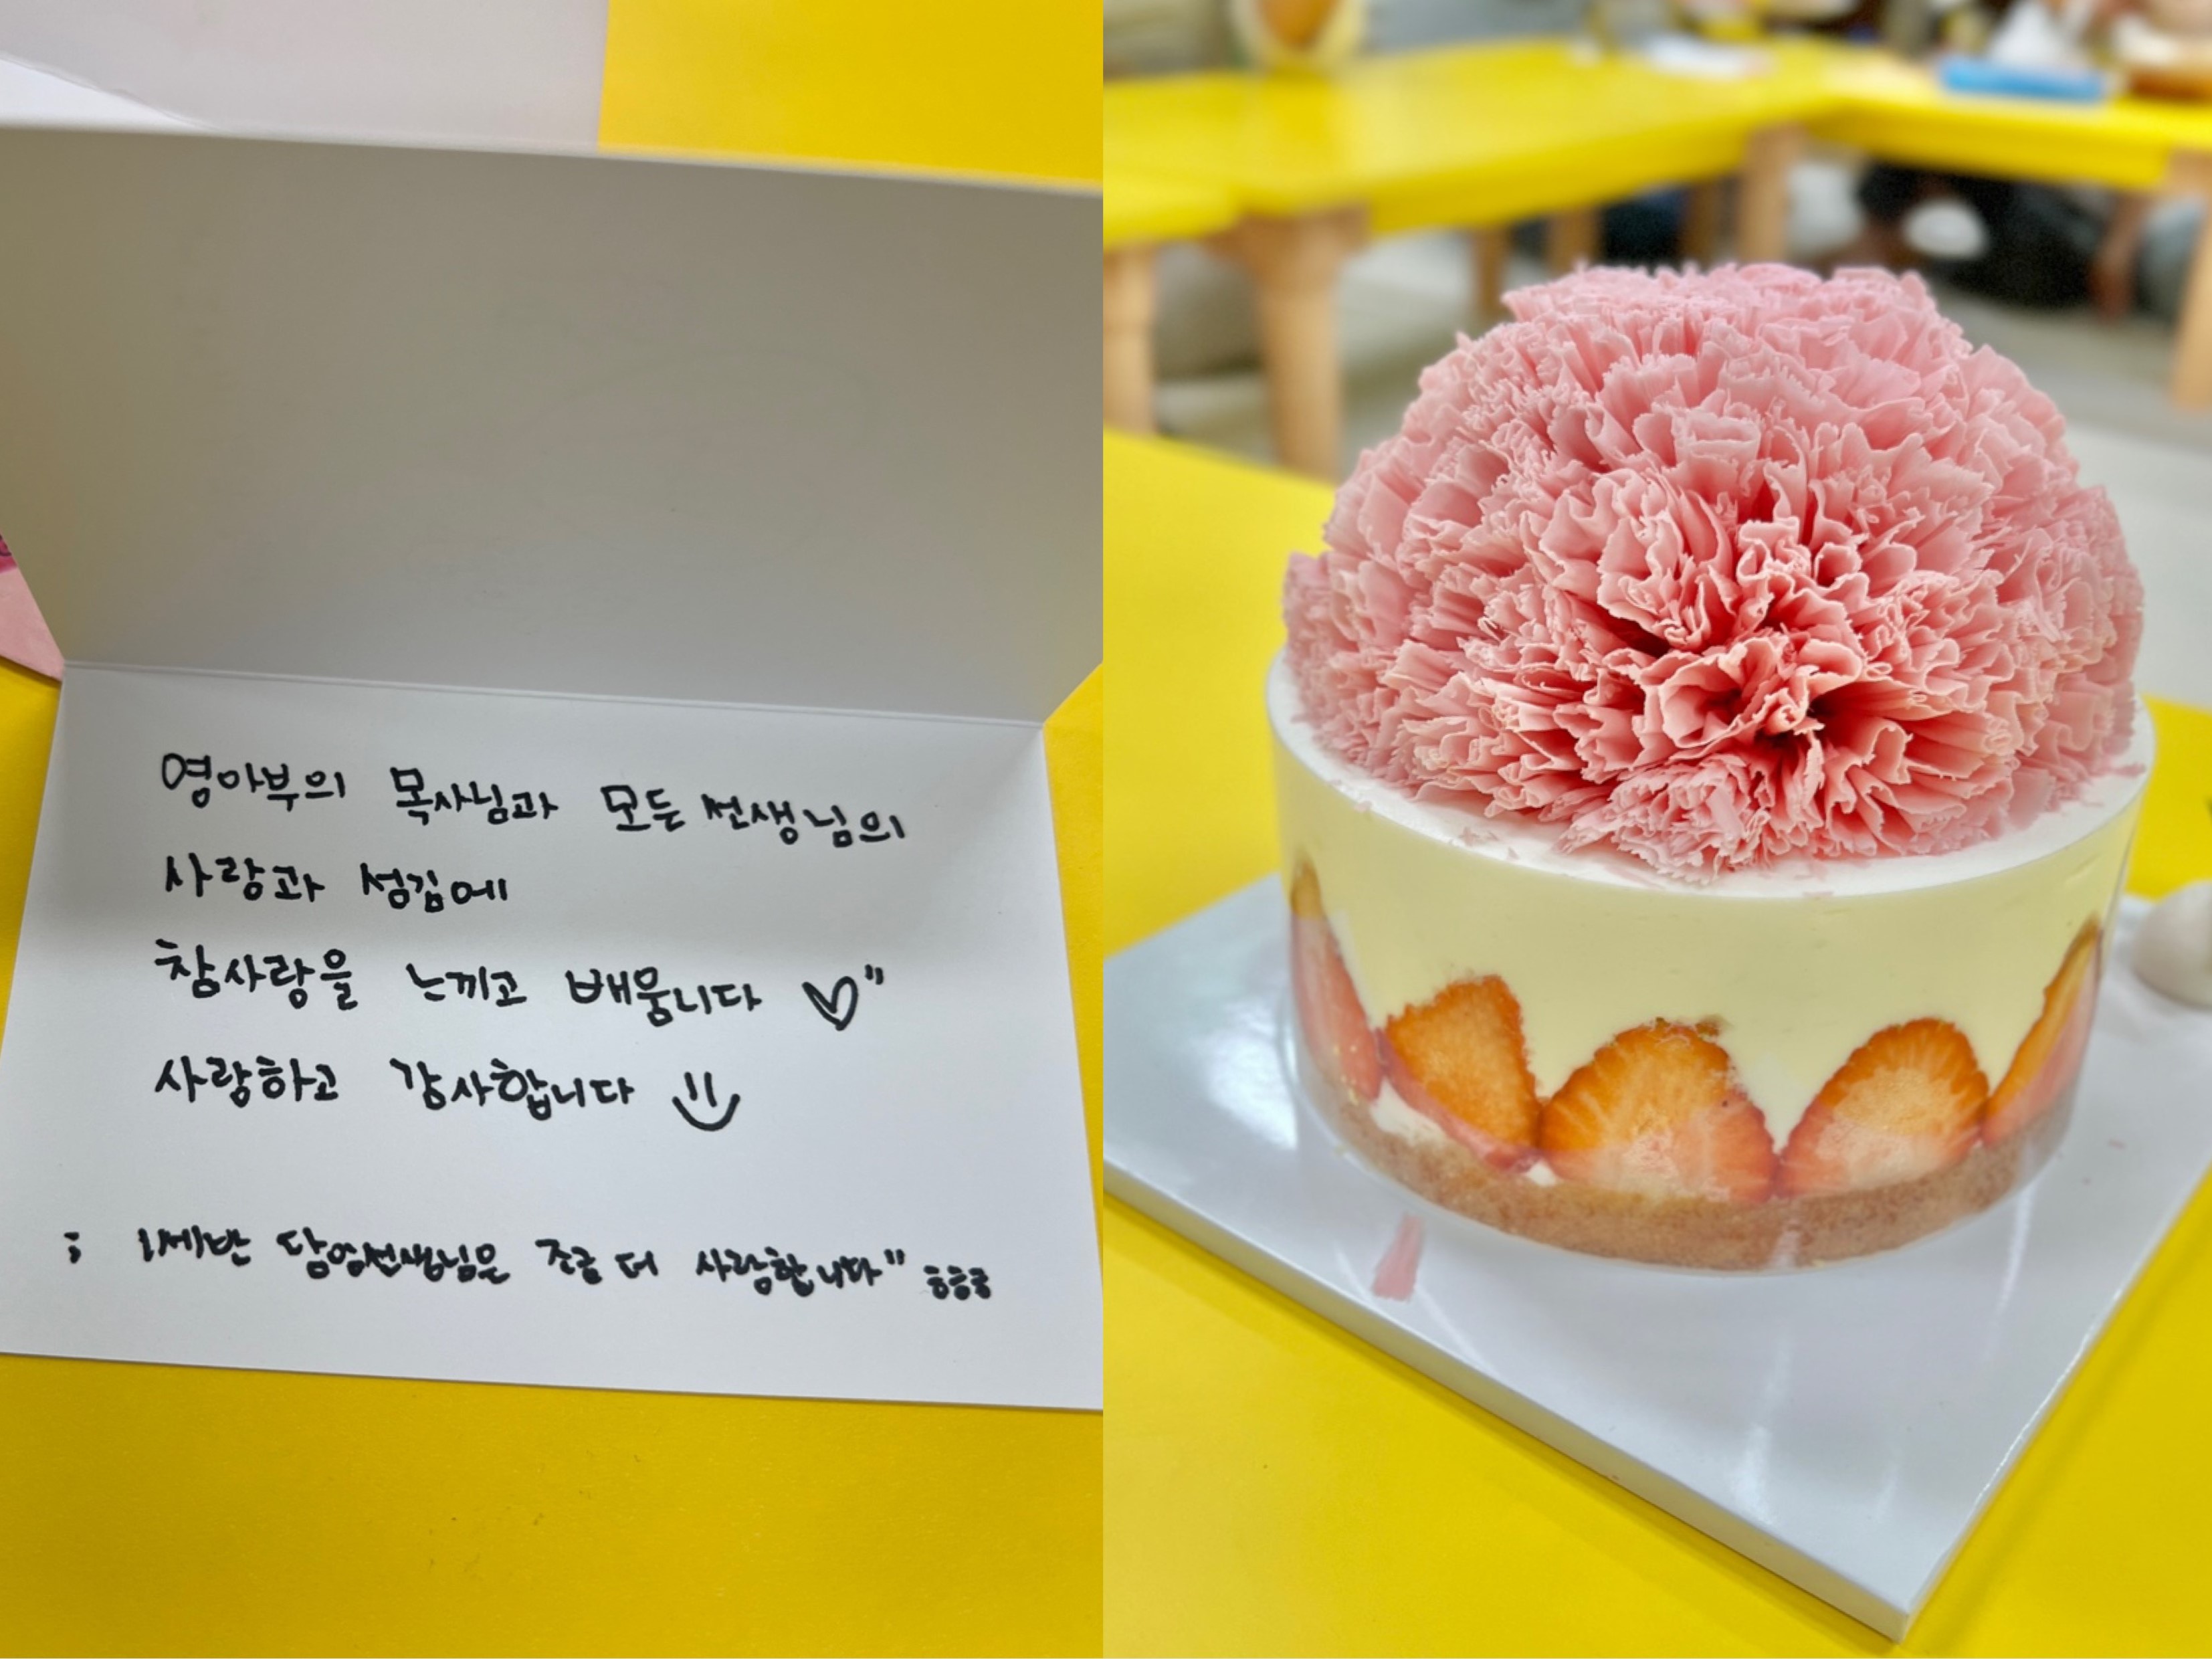 영아부의 목사님과 모든 선생님의
사랑과 섬김에
참사랑을 느끼고 배웁니다 ♡"
사랑하고 감사합니다
; 1세반 담임선생님은 조금 더 사랑합니다"